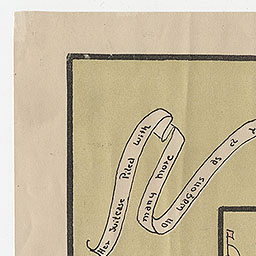 Her Suitcase Piled with
many more
on wagons as et